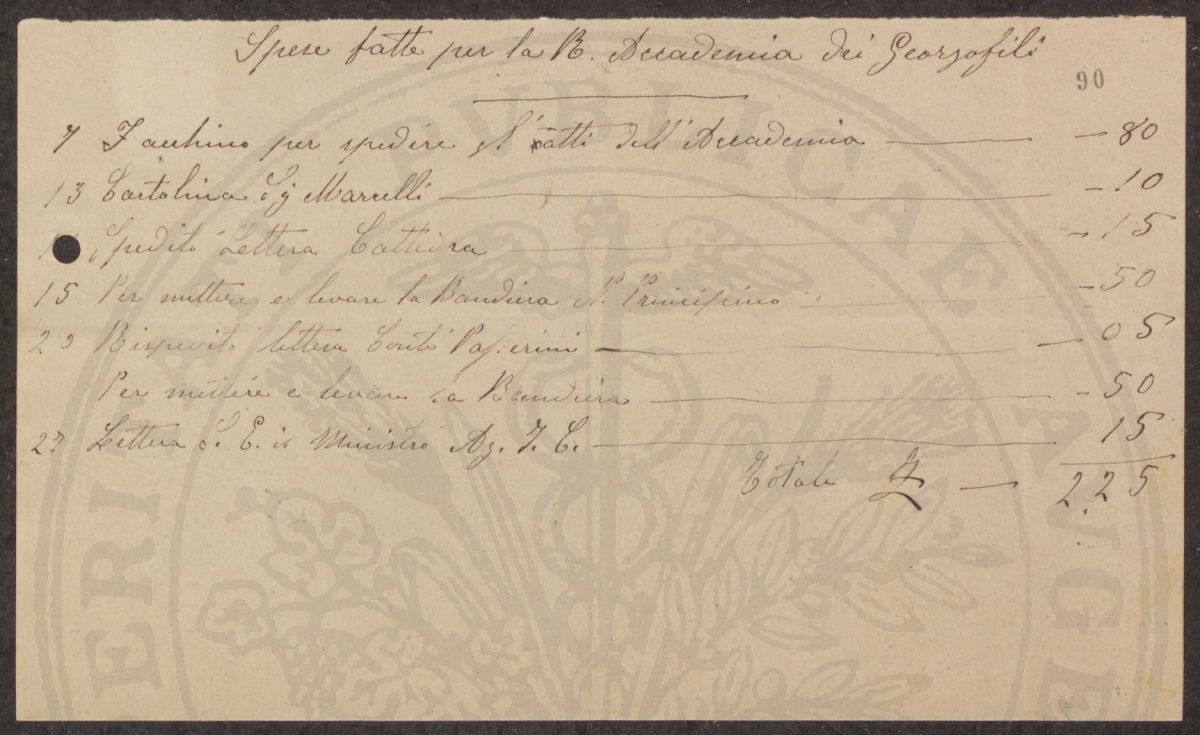 Spese fatte per la R. Accademia dei Georgofili
90
7 Facchino per spedire gl'atti dell'Accademia — 80
13 Cartolina Sig Marcelli — 10
Spedito Lettera Cattedra — 15
15 Per mettere e levare la Bandiera N. Principino — 50
20 Rispedito lettera Conte Paserini — 05
Per mettere e levare la Bandiera — 50
27 Lettera S. E. il Ministro Ag. I. C. — 15
Totale £ — 2.25
PUBLICAE AUGE